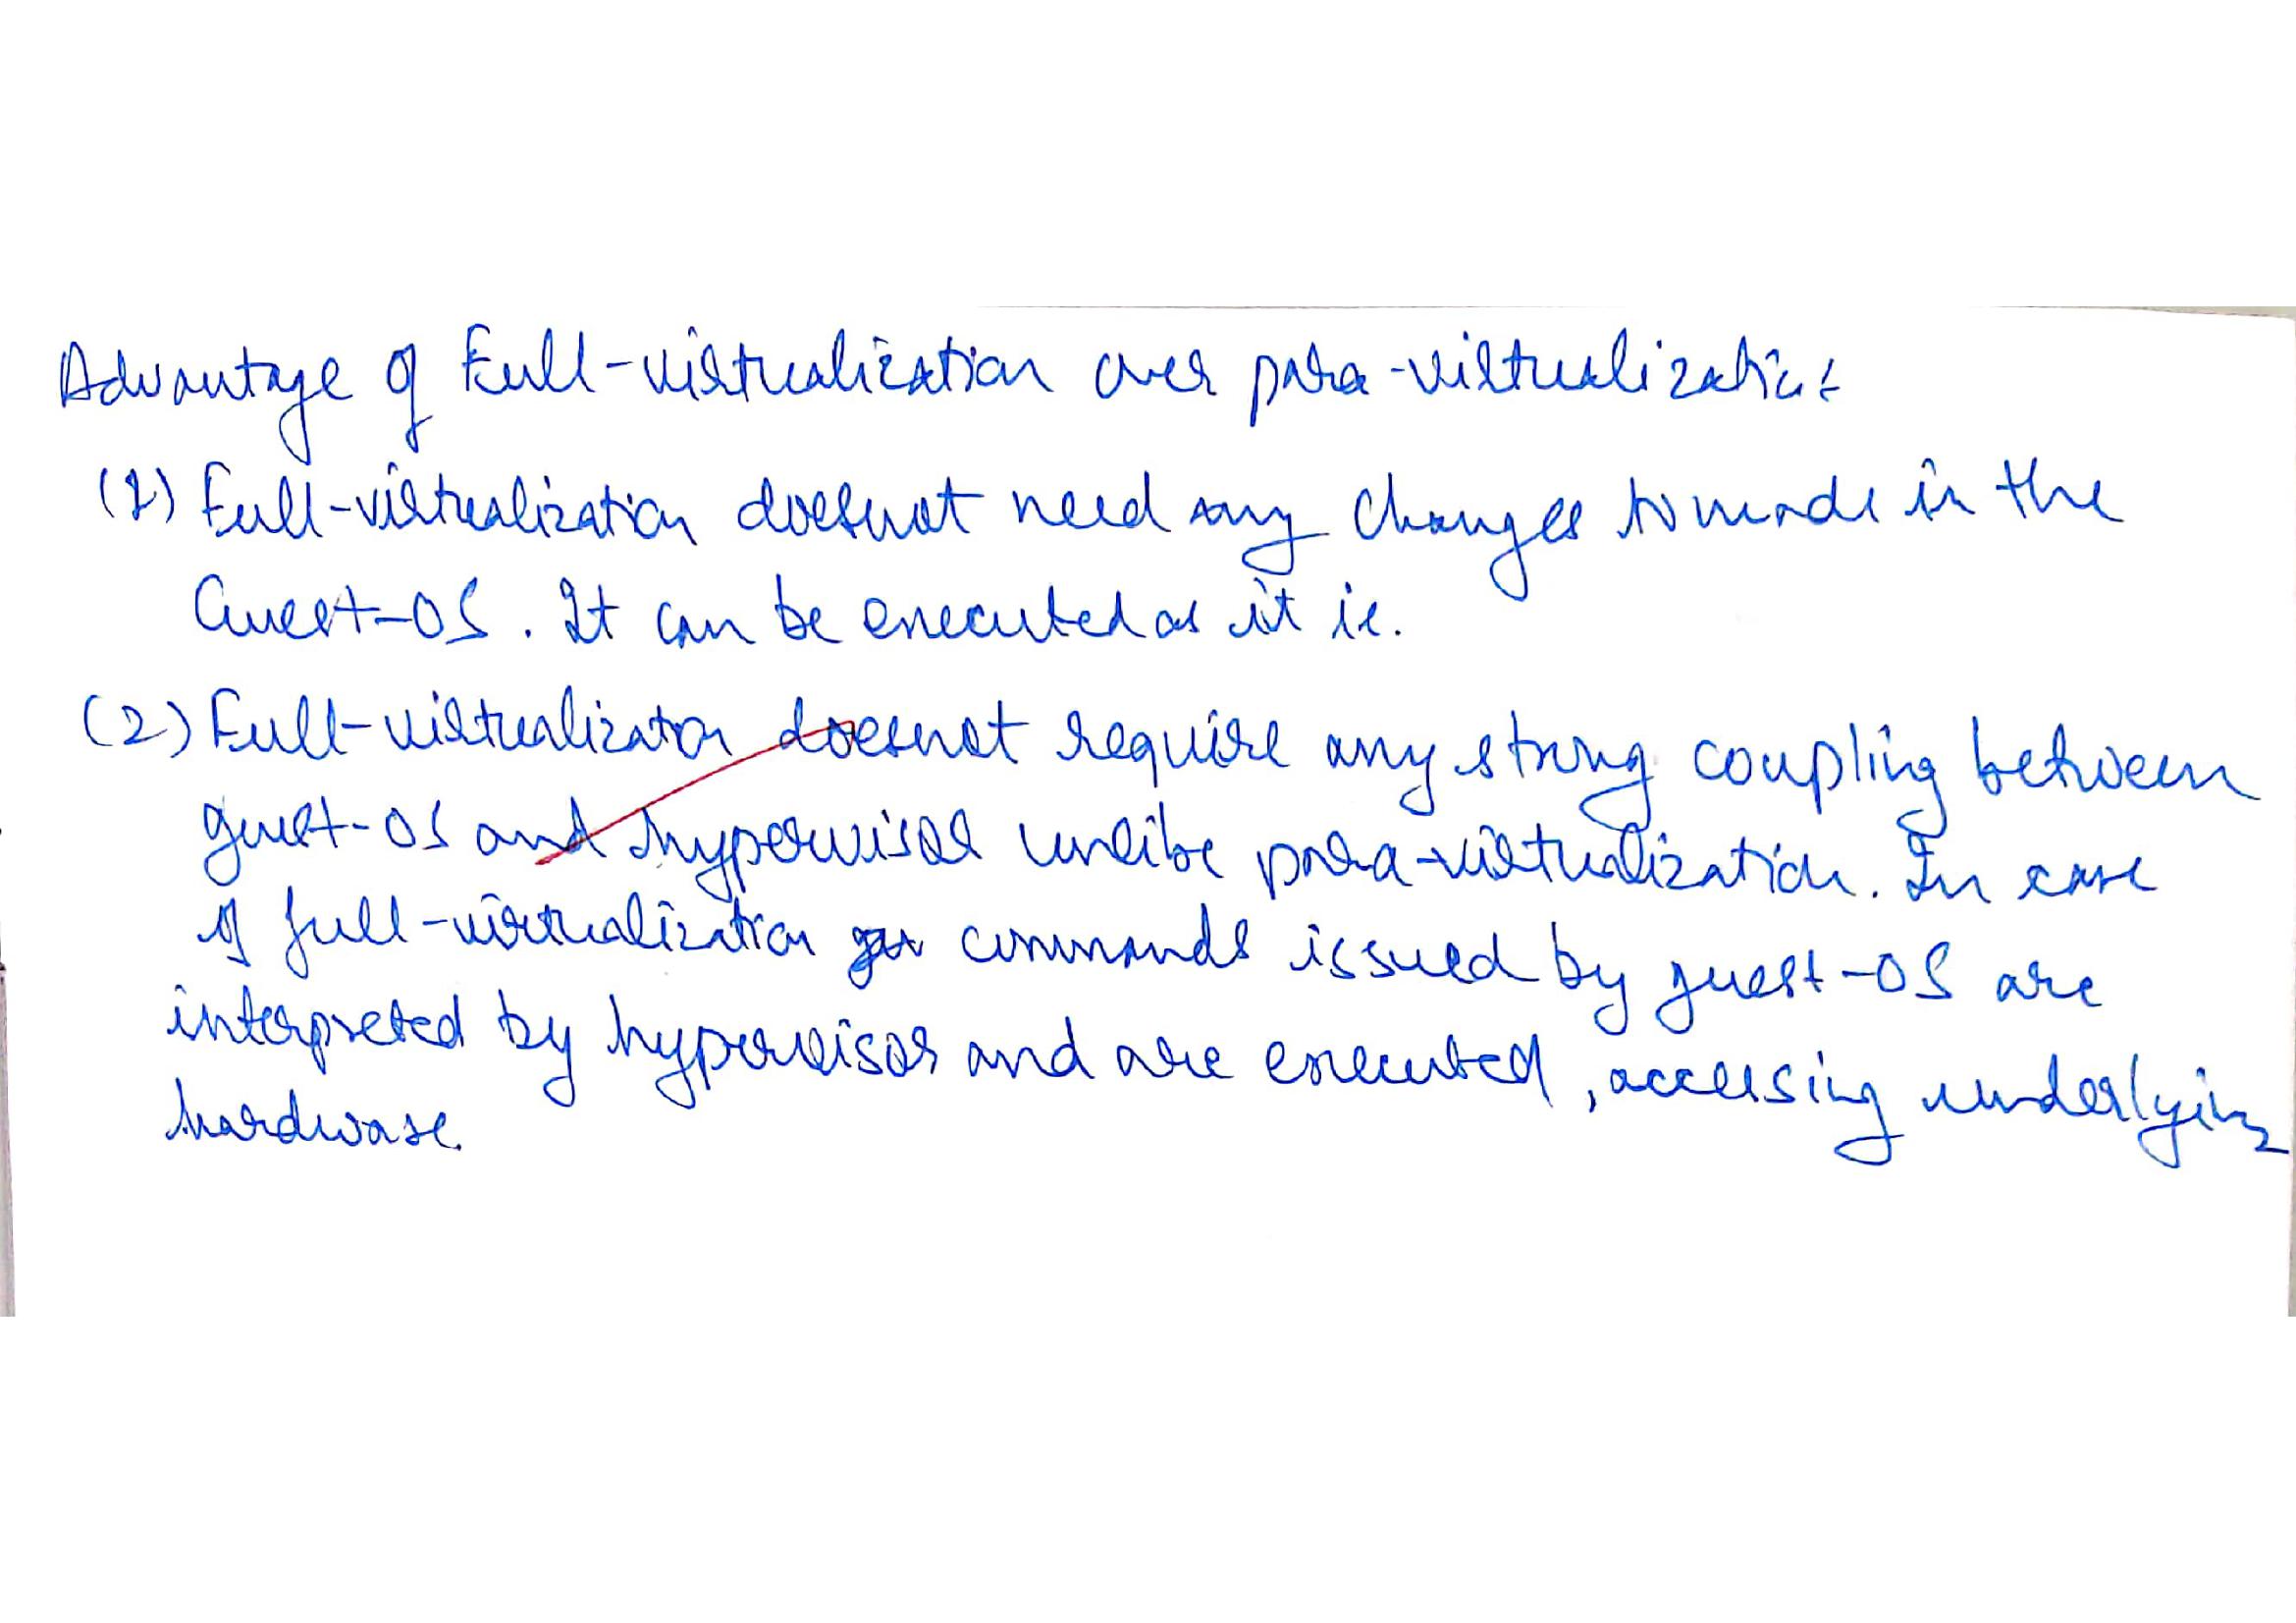 Advantage of Full-virtualization over para-virtualization:
(1) Full-virtualization doesnot need any changes to made in the
Guest-OS. It can be executed as it is.
(2) Full-virtualization doesnot require any strong coupling between
guest-OS and hypervisor unlike para-virtualization. In case
of full-virtualization commands issued by guest-OS are
interpreted by hypervisor and are executed, accessing underlying
hardware.